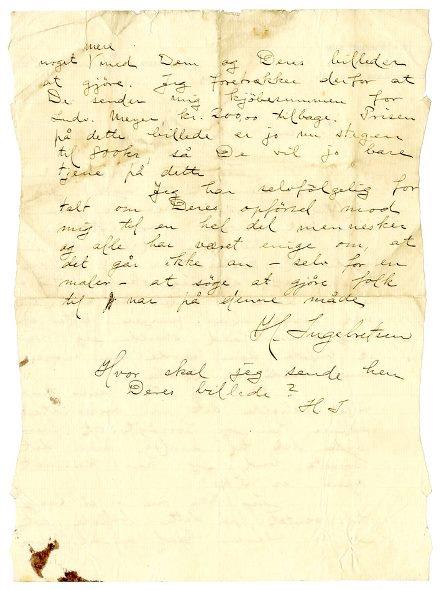 mer
noget med Dem og Deres billeder
at gjöre. Jeg foretrækker derfor at
De sender mig kjöbesummen for
Ludv. Meyer, kr. 200,00 tilbage. Prisen
på dette billede er jo nu stegen
til 800kr, så De vil jo bare
tjene på dette
Jeg har selvfölgelig for
talt om Deres opförsel mod
mig til en hel del mennesker
og alle har været enige om, at
det går ikke an – selv for en
maler – at söge at gjöre folk
til nar på denne måde
H. Ingebretsen
Hvor skal jeg sende hen
Deres billede?
H I.